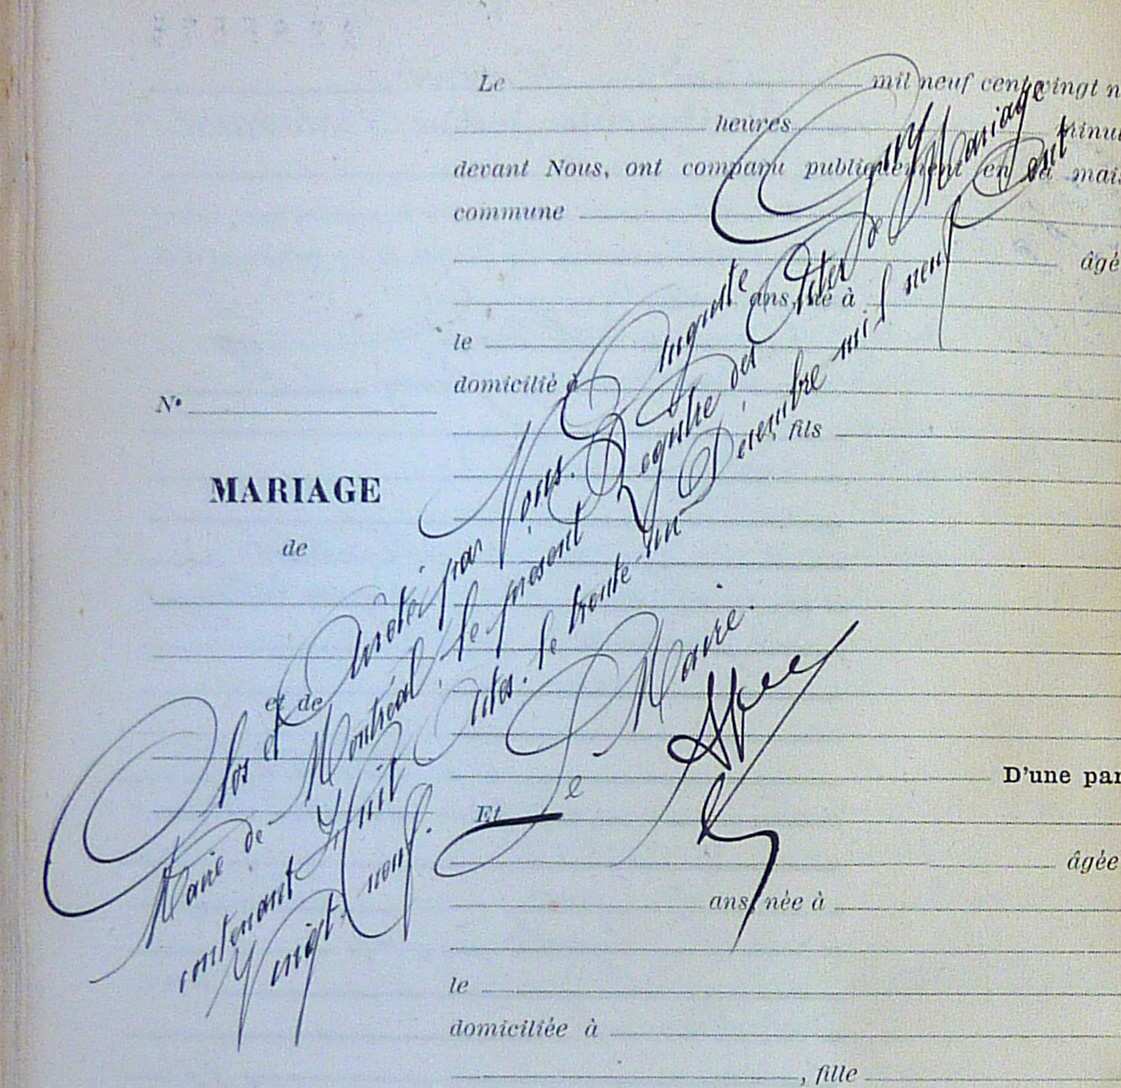 Le mil neuf cent vingt n
heures minu
devant Nous, ont comparu publiquement en la mais
commune
âgé
ans, né à
le
domicilié à
N°
, fils
MARIAGE
de
et de
D'une par
Et
âgée
ans, née à
le
domiciliée à
, fille
Clos et Arrêté par Nous. Auguste
Maire de Montréal, le présent Registre des Actes de Mariage
contenant Huit Actes. le trente-un Décembre mil neuf Cent
Vingt neuf.
Le Maire.